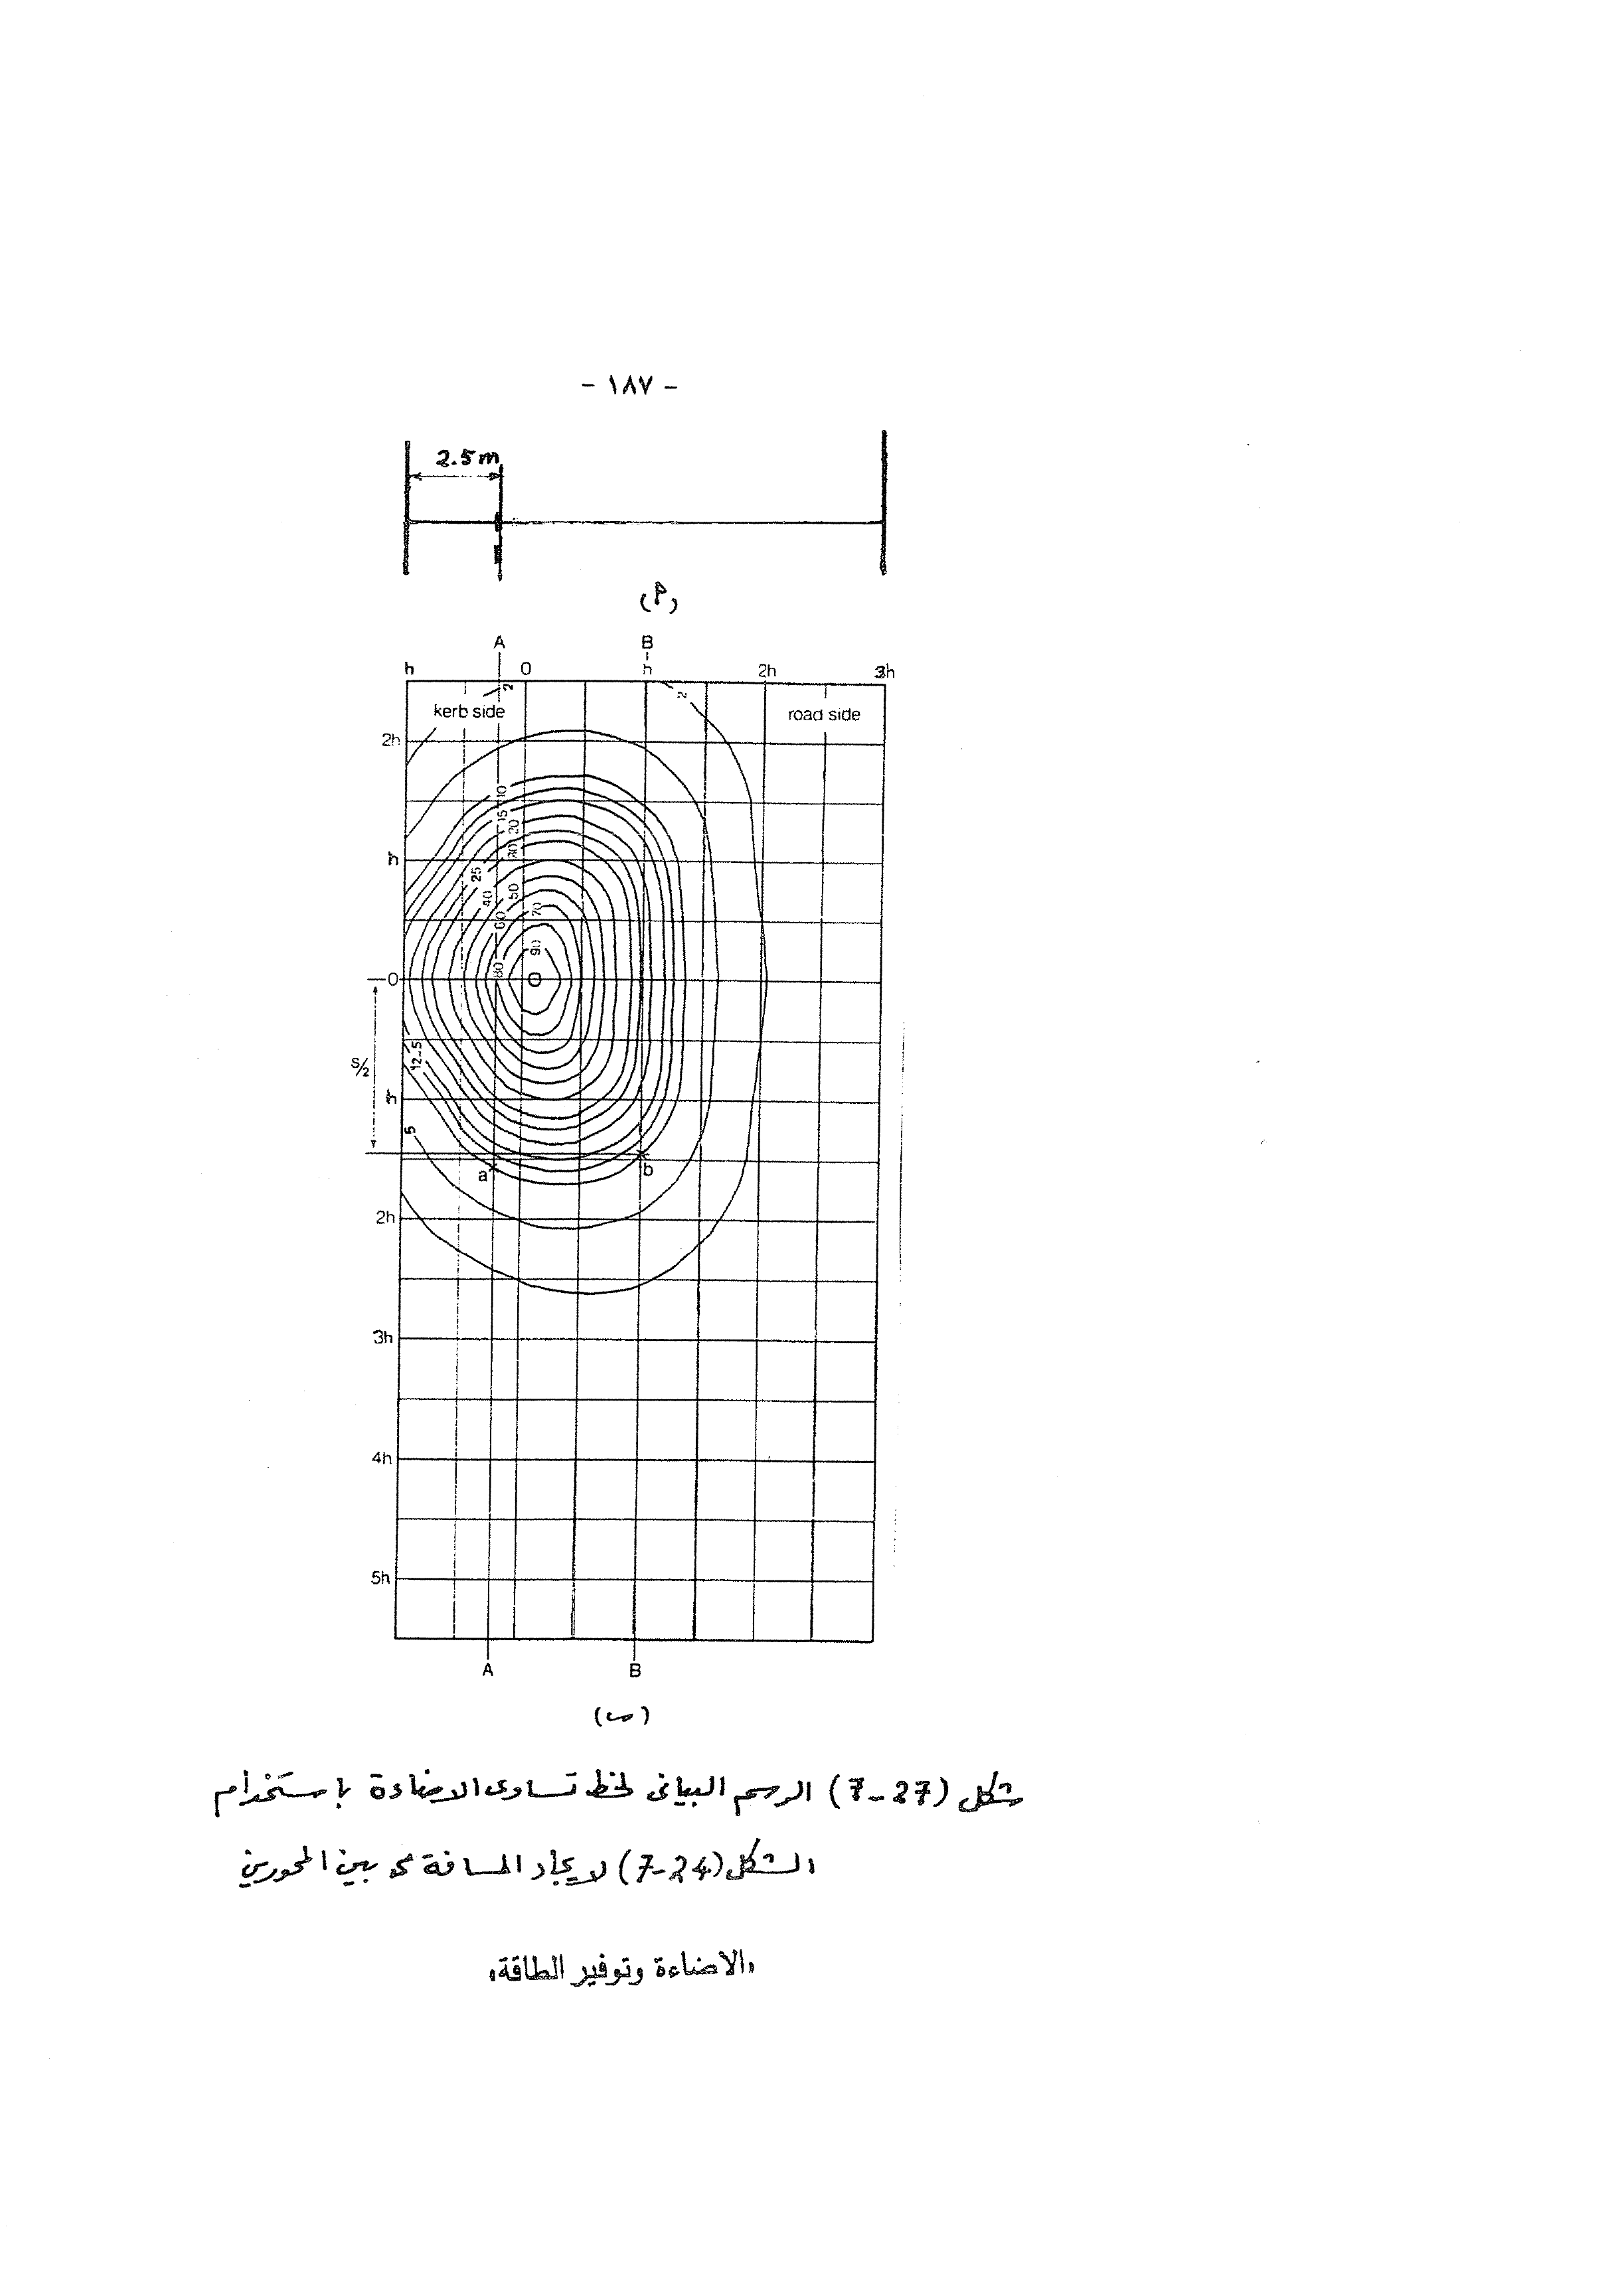 - ١٨٧ -
2.5m
(أ)
A B
h 0 h 2h 3h
2
2
kerb side
road side
2h
10
15
20
30
h
25
40
50
60
70
90
80
0
12.5
S/2
h
5
a
b
2h
3h
4h
5h
A B
(ب)
شكل (27-7) الرسم البيانى لخط تساوى الاضاءة باستخدام
الشكل (24-7) لايجاد المسافة بين المحورين
«الاضاءة وتوفير الطاقة»